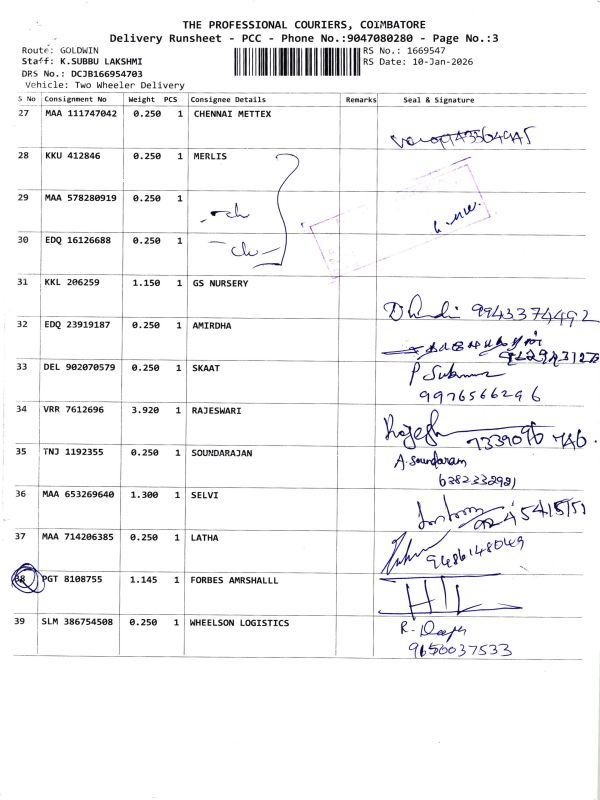 THE PROFESSIONAL COURIERS, COIMBATORE
Delivery Runsheet - PCC - Phone No.:9047080280 - Page No.:3
Route: GOLDWIN
Staff: K.SUBBU LAKSHMI
DRS No.: DCJB166954703
Vehicle: Two Wheeler Delivery
RS No.: 1669547
RS Date: 10-Jan-2026
S No Consignment No Weight PCS Consignee Details Remarks Seal & Signature
27 MAA 111747042 0.250 1 CHENNAI METTEX
28 KKU 412846 0.250 1 MERLIS
29 MAA 578280919 0.250 1
30 EDQ 16126688 0.250 1
31 KKL 206259 1.150 1 GS NURSERY
9943374492
32 EDQ 23919187 0.250 1 AMIRDHA
33 DEL 902070579 0.250 1 SKAAT
9976566296
34 VRR 7612696 3.920 1 RAJESWARI
Rajesh
35 TNJ 1192355 0.250 1 SOUNDARAJAN
A. Soundaram
6382332921
36 MAA 653269640 1.300 1 SELVI
37 MAA 714206385 0.250 1 LATHA
9486148049
38 PGT 8108755 1.145 1 FORBES AMRSHALLL
39 SLM 386754508 0.250 1 WHEELSON LOGISTICS
9650037533